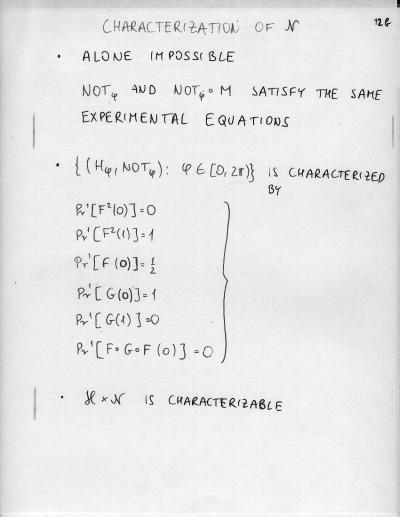 CHARACTERIZATION OF 𝒩
12G
• ALONE IMPOSSIBLE
NOTφ AND NOTφ∘M SATISFY THE SAME
EXPERIMENTAL EQUATIONS
• {(Hφ, NOTφ): φ ∈ [0, 2π)} IS CHARACTERIZED
BY
Pr'[F²(0)]=0
Pr'[F²(1)]=1
Pr'[F(0)]=½
Pr'[G(0)]=1
Pr'[G(1)]=0
Pr'[F∘G∘F(0)]=0
• ℋ×𝒩 IS CHARACTERIZABLE